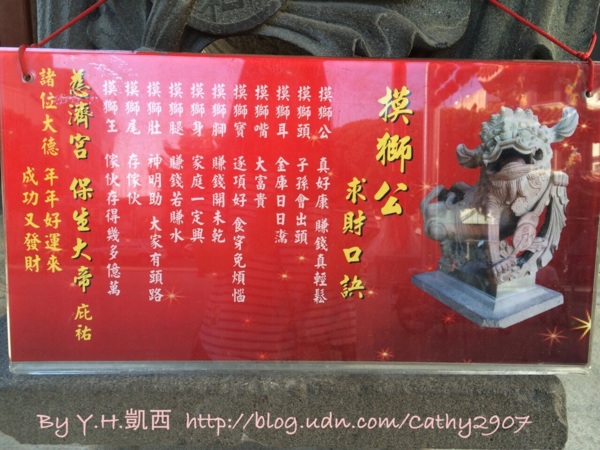 摸獅公
求財口訣
摸獅公 真好康 賺錢真輕鬆
摸獅頭 子孫會出頭
摸獅耳 金庫日日
摸獅嘴 大富貴
摸獅寶 逐項好 食穿免煩惱
摸獅腳 賺錢開未乾
摸獅身 家庭一定興
摸獅腿 賺錢若賺水
摸獅肚 神明助 大家有頭路
摸獅尾 存傢伙
摸獅全 傢伙存得幾多億萬
慈濟宮 保生大帝 庇祐
諸位大德 年年好運來
成功又發財
By Y.H.凱西 http://blog.udn.com/cathy2907